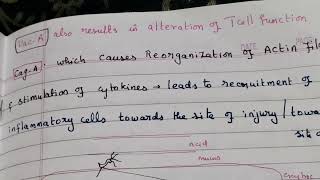 Vac-A also results in alteration of T cell function
Cag-A. which causes Reorganization of Actin Fil
DATE
& stimulation of cytokines → leads to recruitment of
inflammatory cells towards the site of injury / towar
site o
acid
mucus